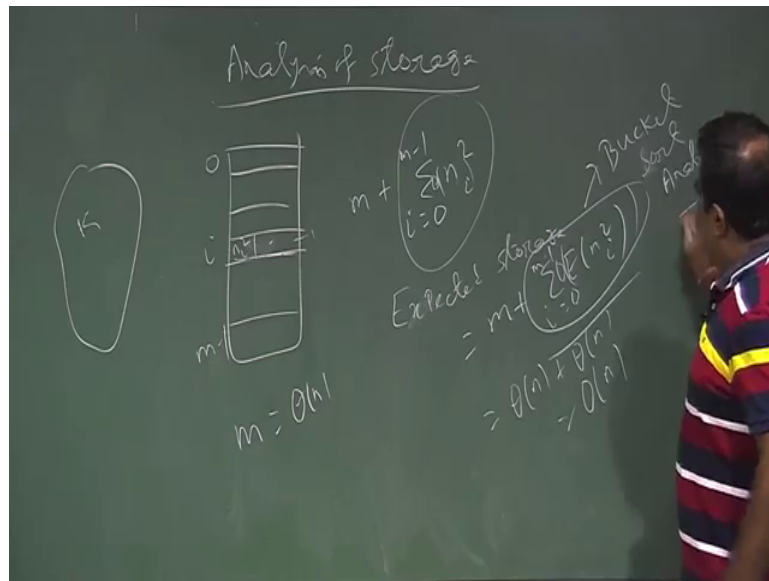 Analysis of storage
K
0
i
m-1
m = θ(n)
m + Σ_{i=0}^{m-1} θ(n_i^2)
Expected storage
= m + Σ_{i=0}^{m-1} θE(n_i^2)
→ Bucket
Sort
= θ(n) + θ(n)
= θ(n)